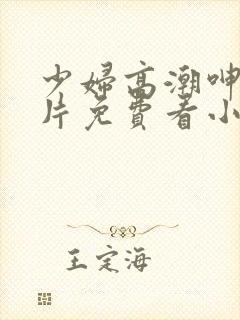 少婦高潮呻
片免費看小
王定海